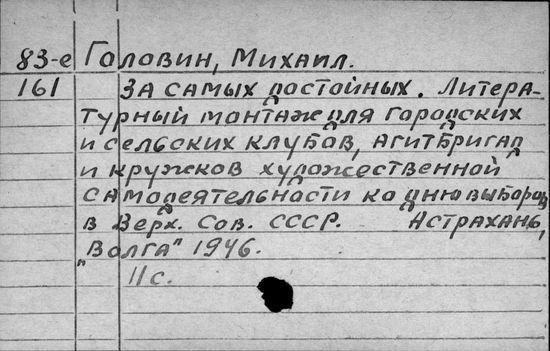 83-е Головин, Михаил.
161 За самых достойных. Литера-
турный монтаж для городских
и сельских клубов, агитбригад
и кружков художественной
самодеятельности ко дню выборов
в Верх. Сов. СССР. Астрахань,
"Волга" 1946.
11 с.